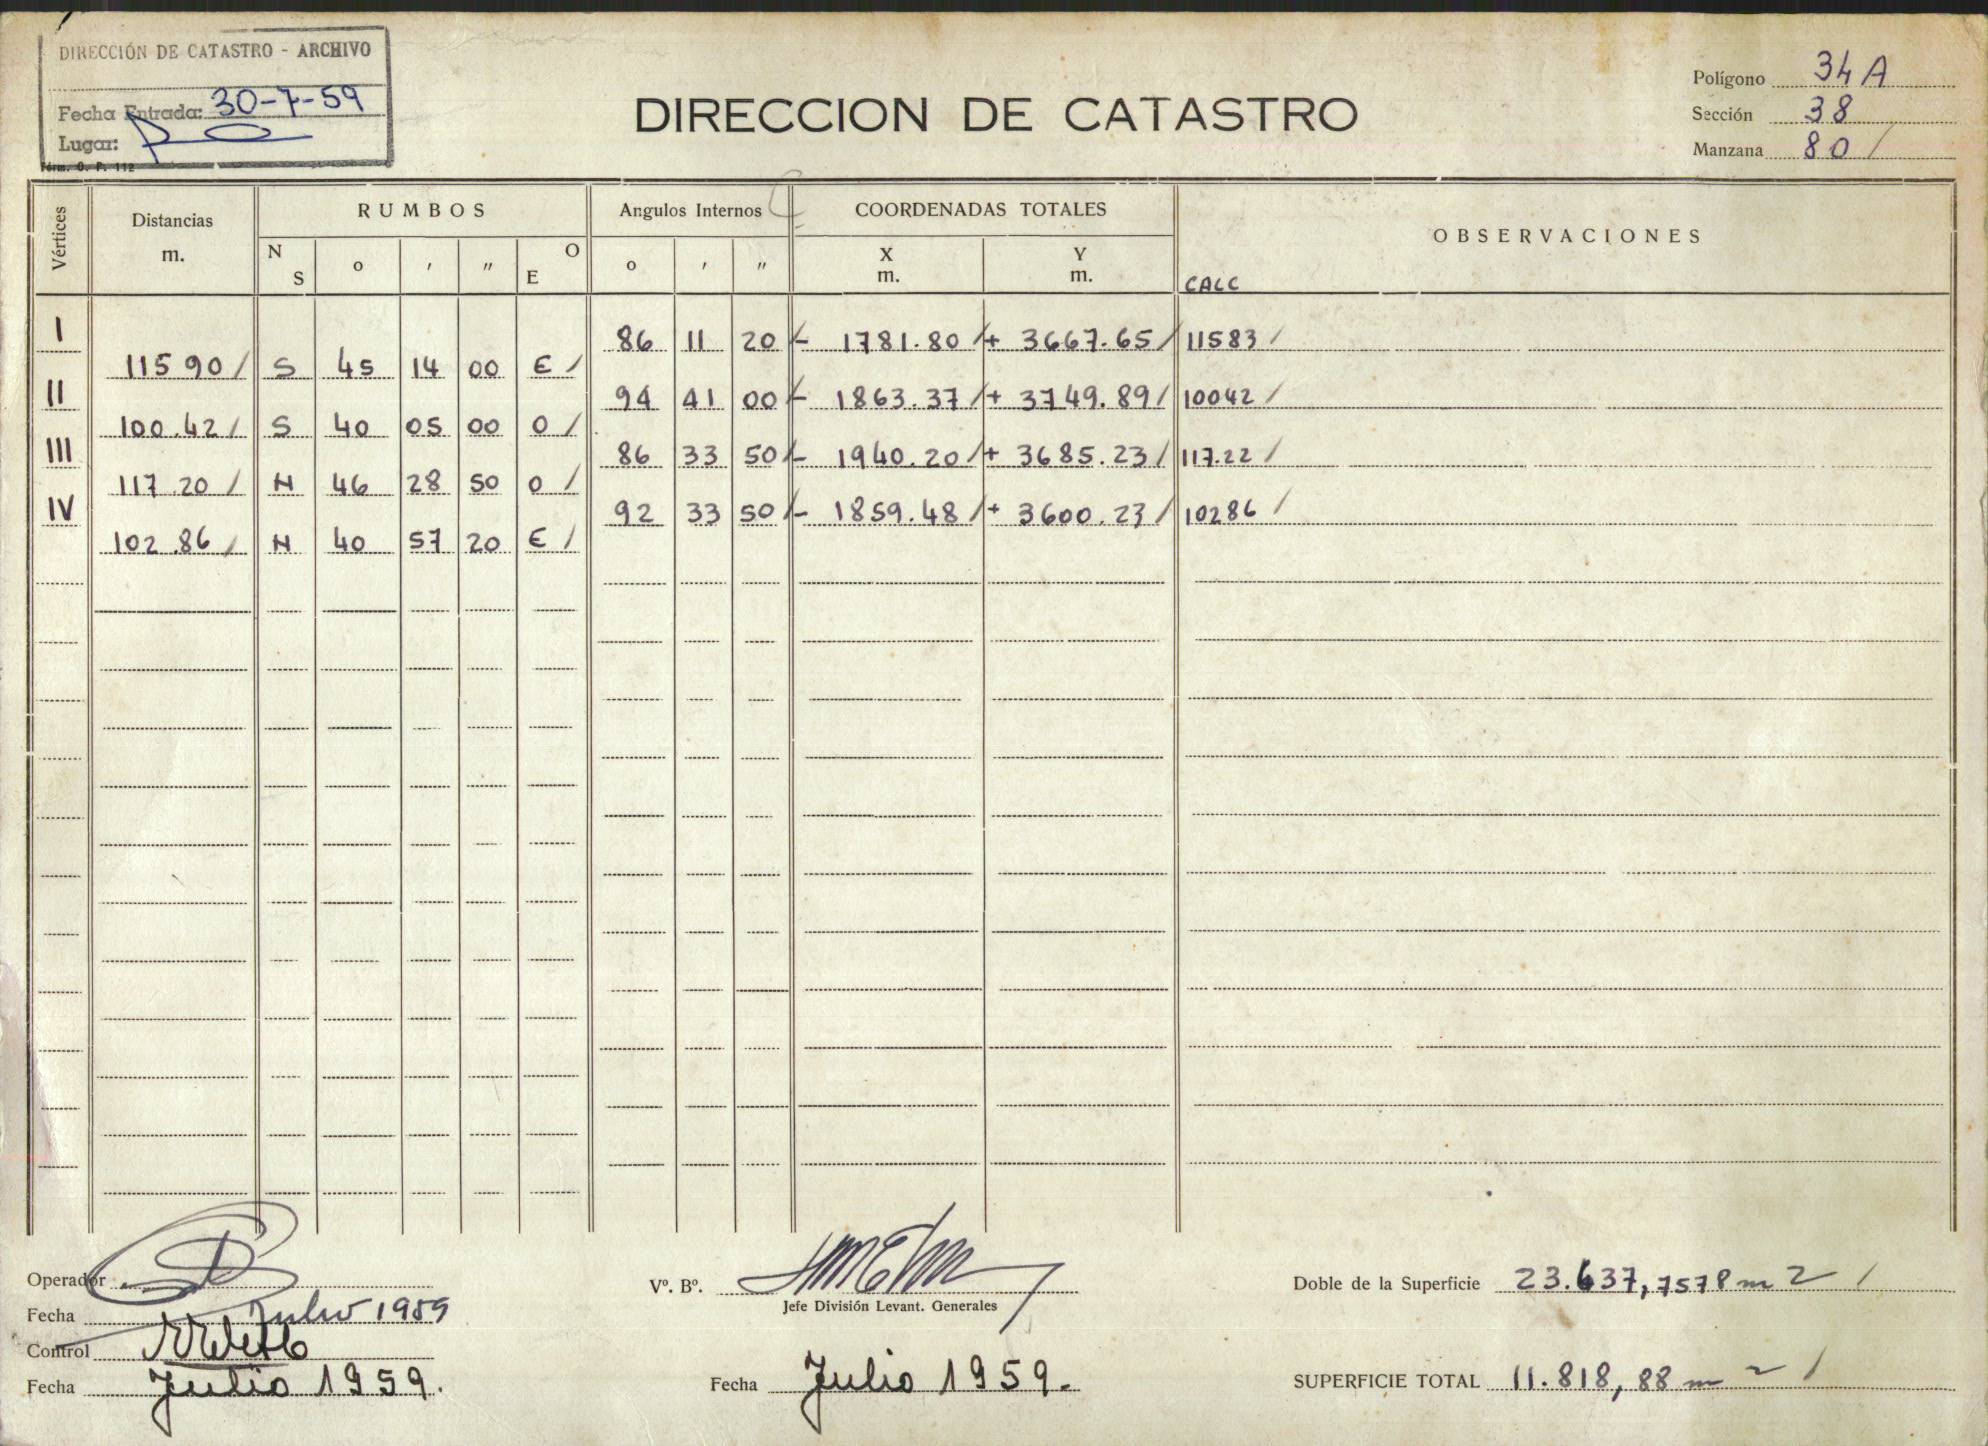 DIRECCIÓN DE CATASTRO - ARCHIVO
Fecha Entrada: 30-7-59
Lugar:
Fórm. O. P. 112
DIRECCION DE CATASTRO
Polígono 34 A
Sección 38
Manzana 80 /
Vértices Distancias m. RUMBOS Angulos Internos COORDENADAS TOTALES OBSERVACIONES
N S o ' " O E o ' " X m. Y m. CALC
I 86 11 20 /- 1781.80 /+ 3667.65 / 11583 /
115 90 / S 45 14 00 E /
II 94 41 00 /- 1863.37 /+ 3749.89 / 10042 /
100.42 / S 40 05 00 O /
III 86 33 50 /- 1940.20 /+ 3685.23 / 117.22 /
117.20 / N 46 28 50 O /
IV 92 33 50 /- 1859.48 /+ 3600.23 / 10286 /
102.86 / N 40 57 20 E /
Operador
Fecha Julio 1959
Control
Fecha Julio 1959.
Vº. Bº.
Jefe División Levant. Generales
Fecha Julio 1959.
Doble de la Superficie 23.637,7578 m 2 /
SUPERFICIE TOTAL 11.818,88 m 2 /